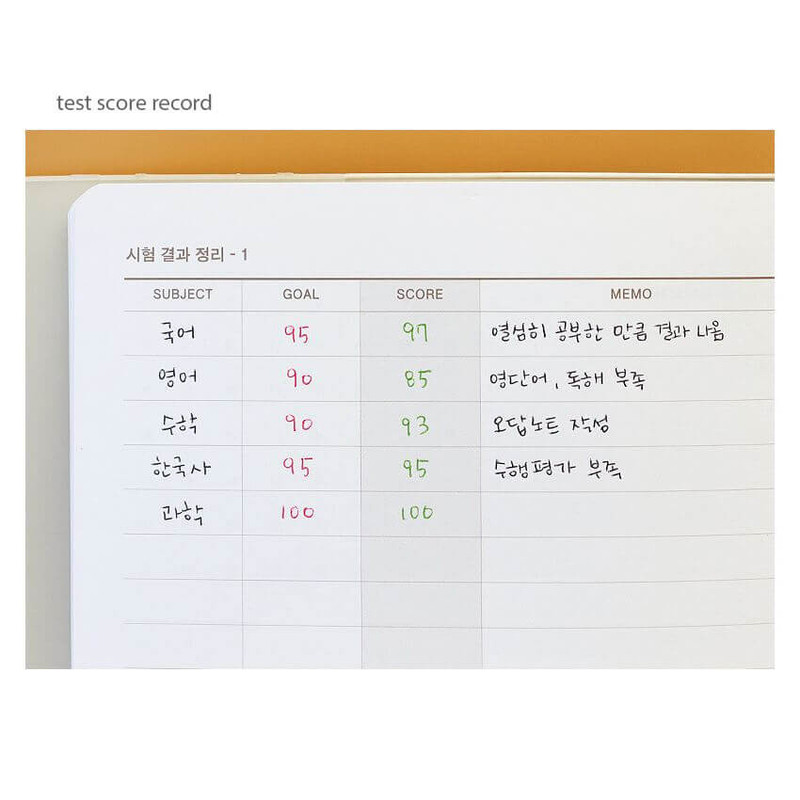 test score record
시험 결과 정리 - 1
SUBJECT GOAL SCORE MEMO
국어 95 97 열심히 공부한 만큼 결과 나옴
영어 90 85 영단어, 독해 부족
수학 90 93 오답노트 작성
한국사 95 95 수행평가 부족
과학 100 100